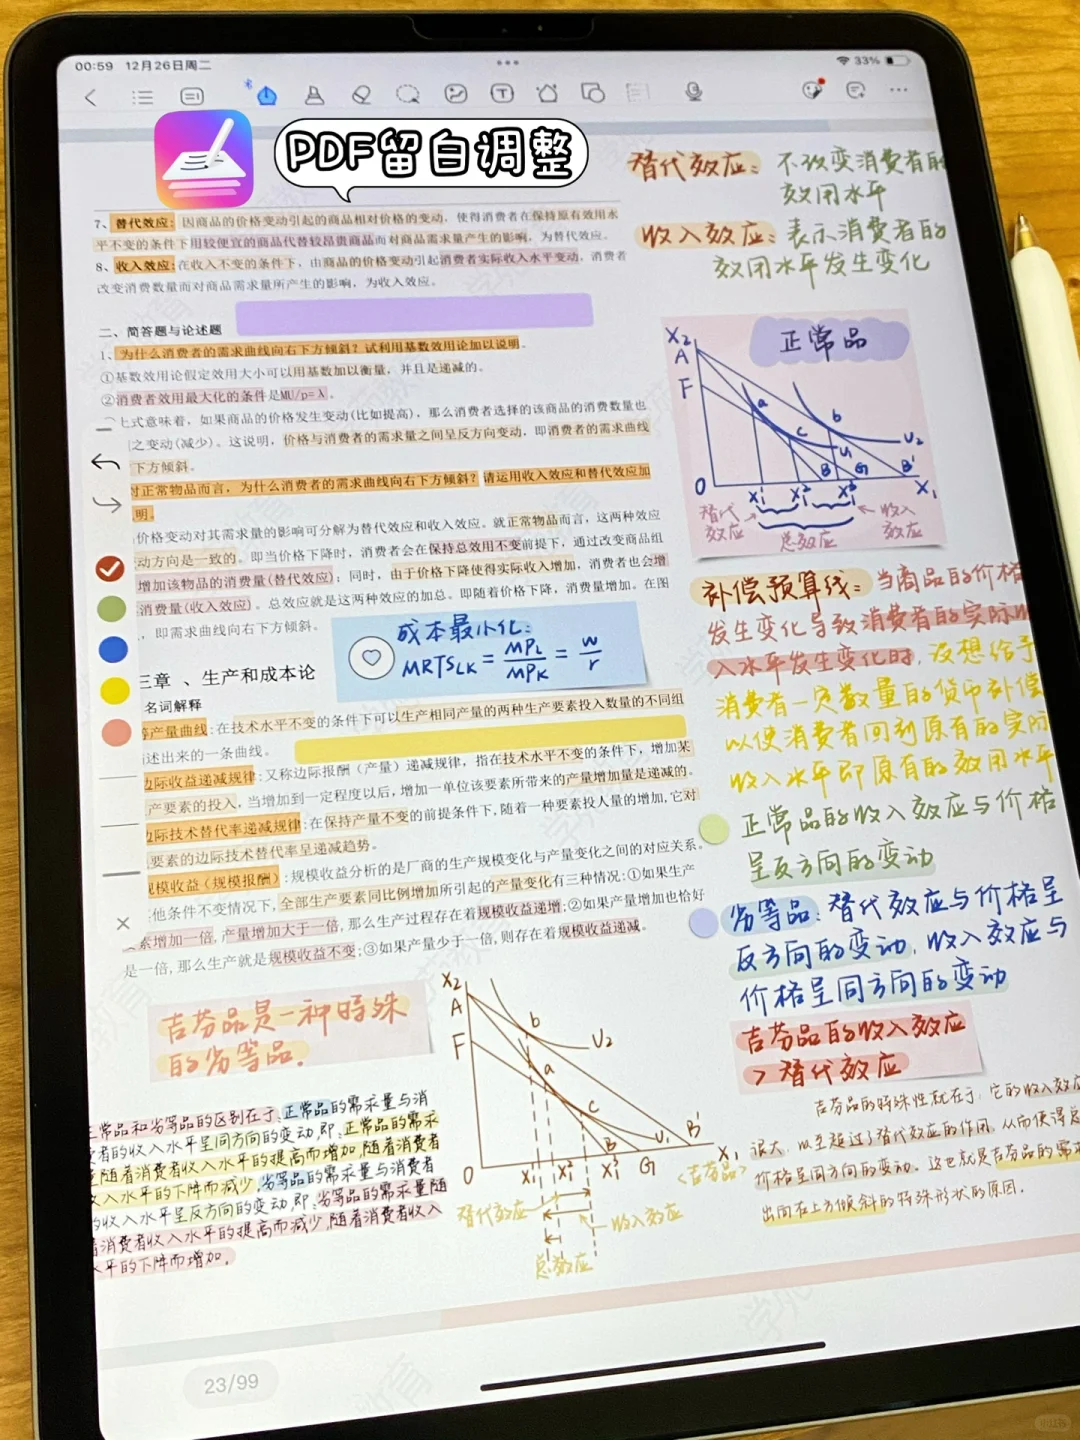 00:59 12月26日周二
33%
PDF留白调整
7、替代效应：因商品的价格变动引起的商品相对价格的变动，使得消费者在保持原有效用水
平不变的条件下用较便宜的商品代替较昂贵商品而对商品需求量产生的影响，为替代效应。
8、收入效应：在收入不变的条件下，由商品的价格变动引起消费者实际收入水平变动，消费者
改变消费数量而对商品需求量所产生的影响，为收入效应。
二、简答题与论述题
1、为什么消费者的需求曲线向右下方倾斜？试利用基数效用论加以说明。
①基数效用论假定效用大小可以用基数加以衡量，并且是递减的。
②消费者效用最大化的条件是MU/p=λ。
上式意味着，如果商品的价格发生变动(比如提高)，那么消费者选择的该商品的消费数量也
之变动(减少)。这说明，价格与消费者的需求量之间呈反方向变动，即消费者的需求曲线
下方倾斜。
对正常物品而言，为什么消费者的需求曲线向右下方倾斜？请运用收入效应和替代效应加
明。
价格变动对其需求量的影响可分解为替代效应和收入效应。就正常物品而言，这两种效应
动方向是一致的。即当价格下降时，消费者会在保持总效用不变前提下，通过改变商品组
增加该物品的消费量(替代效应)；同时，由于价格下降使得实际收入增加，消费者也会增
消费量(收入效应)。总效应就是这两种效应的加总。即随着价格下降，消费量增加。在图
，即需求曲线向右下方倾斜。
成本最小化：
MRTS_LK = MP_L/MP_K = w/r
三章 、生产和成本论
名词解释
等产量曲线：在技术水平不变的条件下可以生产相同产量的两种生产要素投入数量的不同组
述出来的一条曲线。
边际收益递减规律：又称边际报酬（产量）递减规律，指在技术水平不变的条件下，增加某
产要素的投入，当增加到一定程度以后，增加一单位该要素所带来的产量增加量是递减的。
边际技术替代率递减规律：在保持产量不变的前提条件下，随着一种要素投入量的增加，它对
要素的边际技术替代率呈递减趋势。
规模收益（规模报酬）：规模收益分析的是厂商的生产规模变化与产量变化之间的对应关系。
他条件不变情况下，全部生产要素同比例增加所引起的产量变化有三种情况：①如果生产
素增加一倍，产量增加大于一倍，那么生产过程存在着规模收益递增；②如果产量增加也恰好
是一倍，那么生产就是规模收益不变；③如果产量少于一倍，则存在着规模收益递减。
吉芬品是一种特殊
的劣等品．
正常品和劣等品的区别在于：正常品的需求量与消
者的收入水平呈同方向的变动，即：正常品的需求
随着消费者收入水平的提高而增加，随着消费者
收入水平的下降而减少，劣等品的需求量与消费者
的收入水平呈反方向的变动，即：劣等品的需求量随
着消费者收入水平的提高而减少，随着消费者收入
水平的下降而增加。
X₂
A
F
b
a
c
U₂
U₁
O
X₁¹ X₁² X₁³
B
G
B'
X₁
<吉芬品>
替代效应
收入效应
总效应
替代效应：不改变消费者的
效用水平
收入效应：表示消费者的
效用水平发生变化
正常品
X₂
A
F
a
b
c
U₂
U₁
B
G
B'
O
X₁¹ X₁² X₁³
X₁
替代
效应
总效应
收入
效应
补偿预算线：当商品的价格
发生变化导致消费者的实际收
入水平发生变化时，假想给予
消费者一定数量的货币补偿
以使消费者回到原有的实际
收入水平即原有的效用水平
正常品的收入效应与价格
呈反方向的变动
劣等品：替代效应与价格呈
反方向的变动，收入效应与
价格呈同方向的变动
吉芬品的收入效应
＞替代效应
吉芬品的特殊性就在于，它的收入效应
很大，以至超过了替代效应的作用，从而使得总
价格呈同方向的变动。这也就是吉芬品的需求
出向右上方倾斜的特殊形状的原因．
23/99
小红书